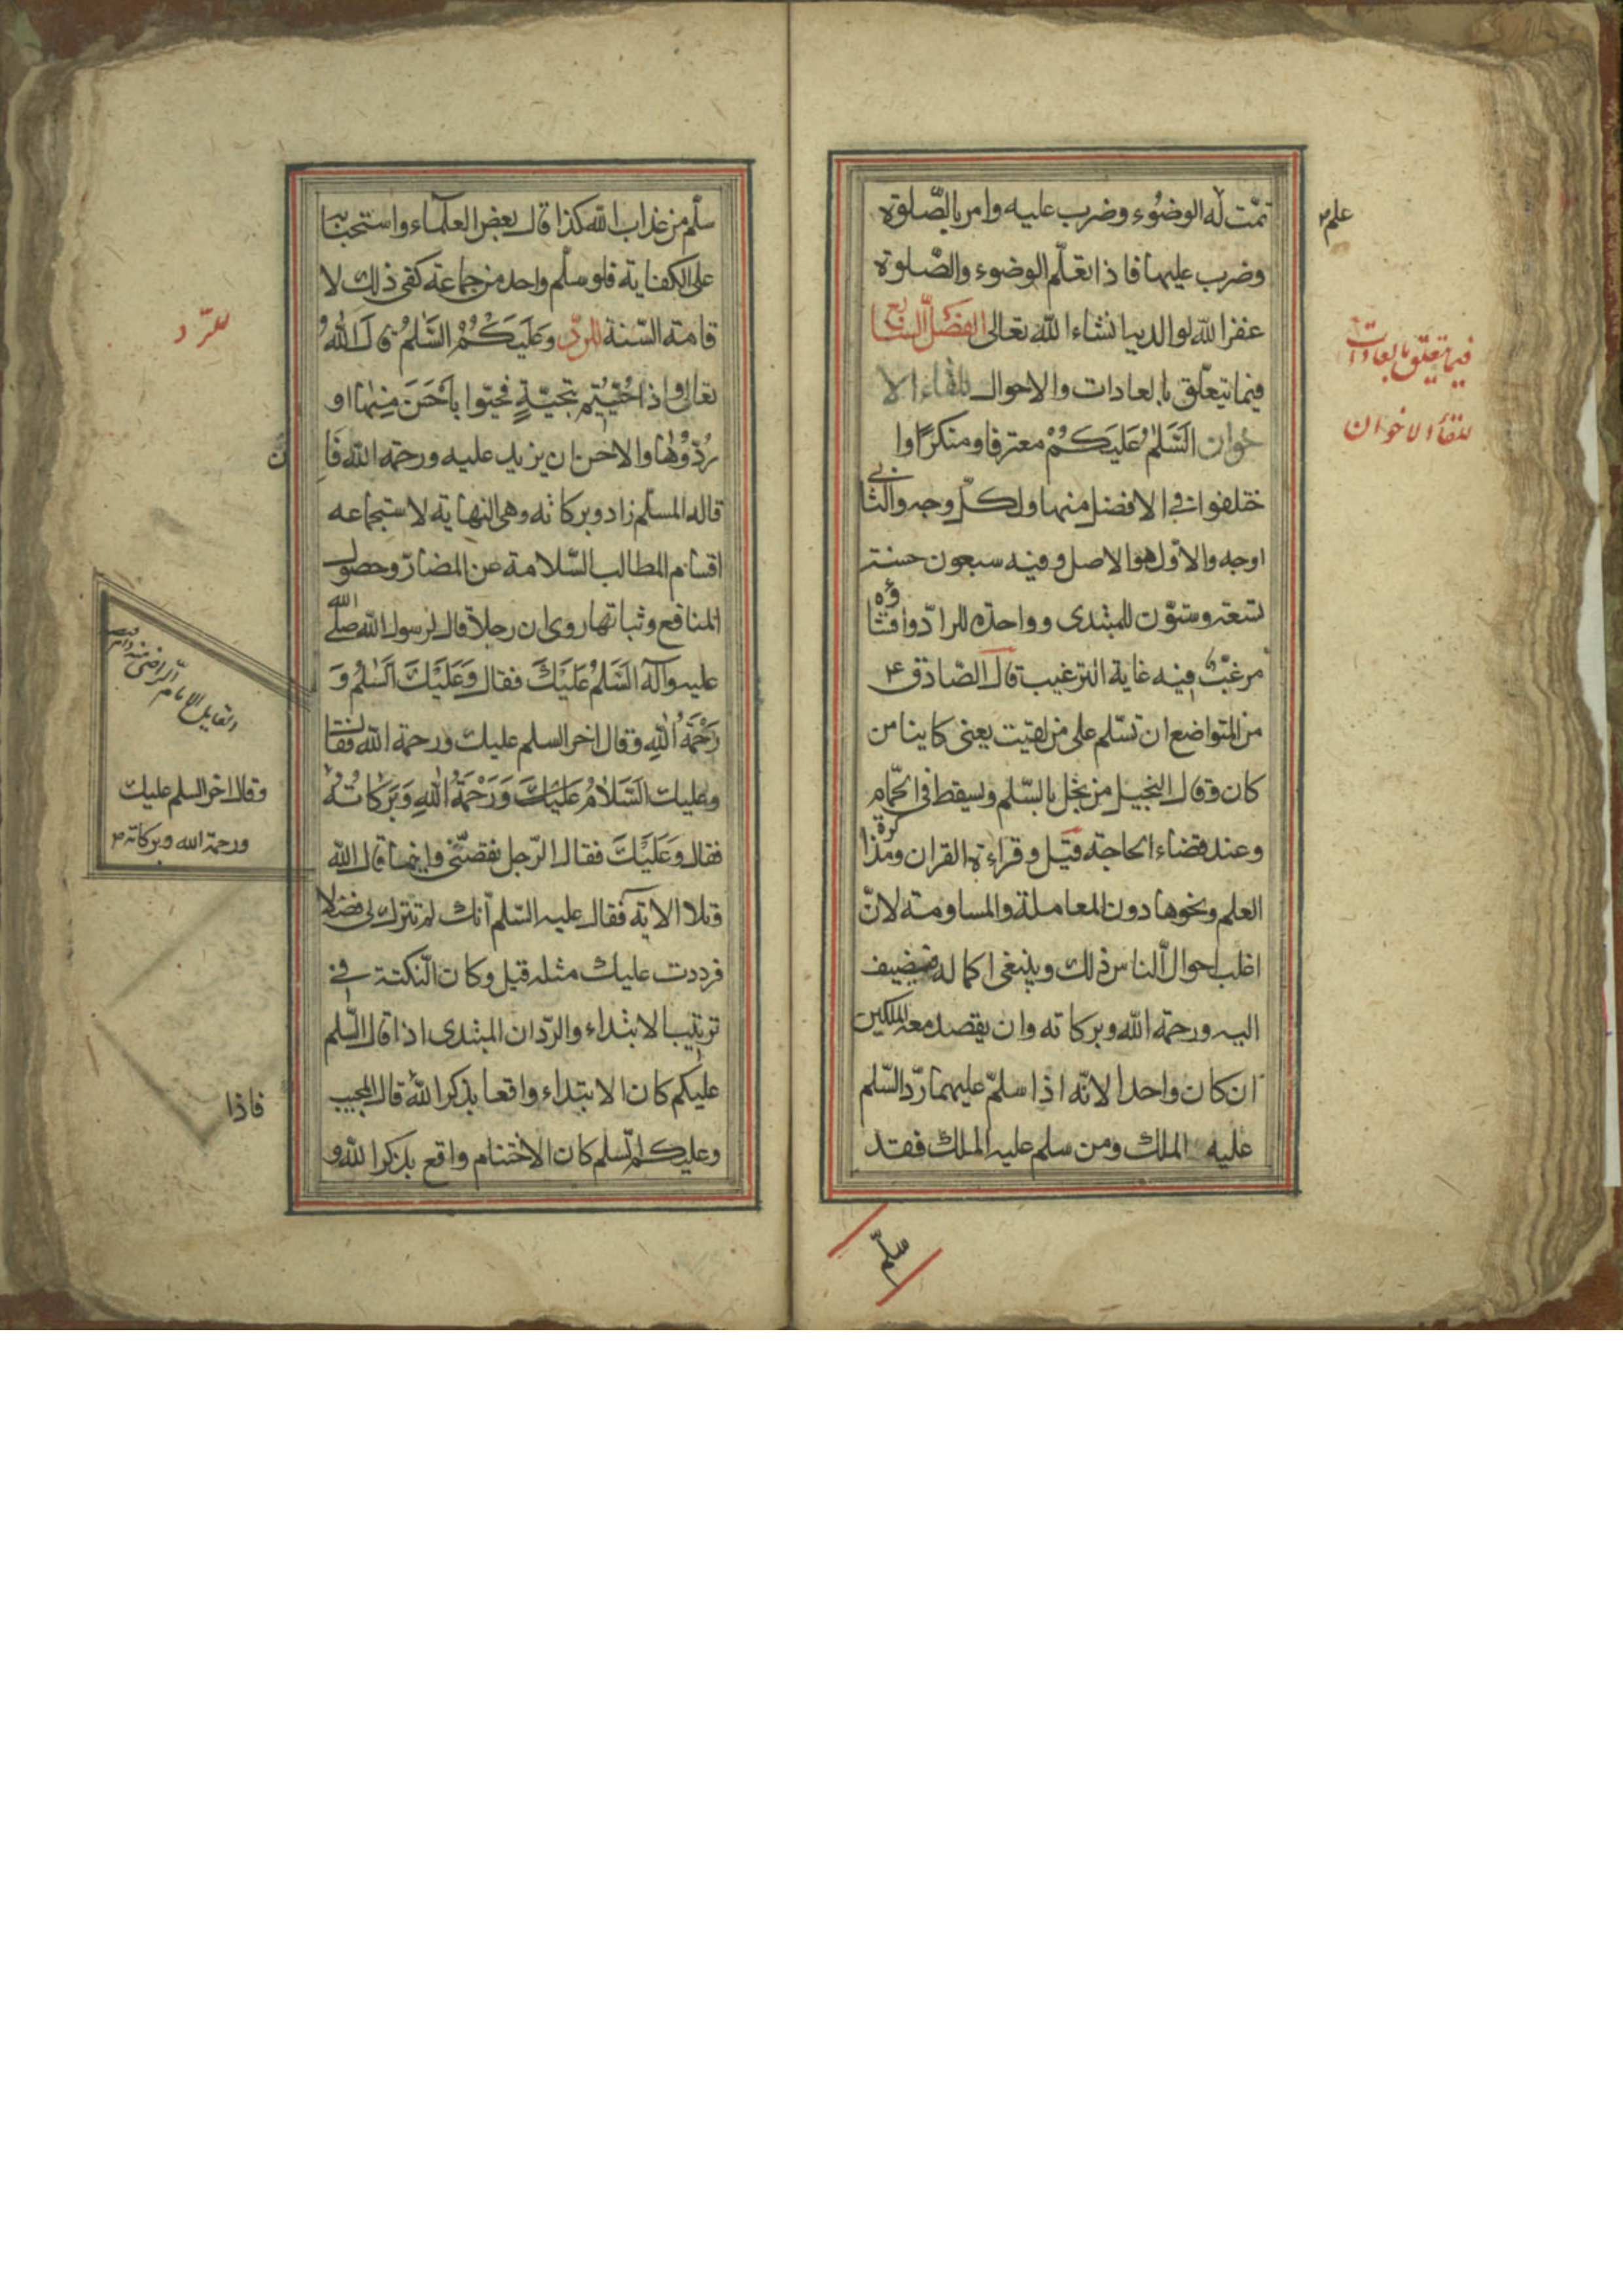 تمّت له الوضوء وضرب عليه وامر بالصّلوة
علم
وضرب عليها فاذا تعلّم الوضوء والصّلوة
غفر الله لوالديه انشاء الله تعالى الفصل السابع
فيما يتعلّق بالعادات والاحوال للقاء الا
خوان السَّلٰمُ عَلَيْكُمْ معترفا ومنكرا وا
فيما يتعلق بالعادات
للقاء الاخوان
ختلفوا في الافضل منهما ولكلّ وجه والثاني
اوجه والاوّل هو الاصل وفيه سبعون حسنة
تسعة وستّون للمبتدى وواحدة للرادّ وافشاؤه
مرغّب فيه غاية الترغيب قال الصّادق ع
من التواضع ان تسّلم على من لقيت يعني كاينا من
كان وقال البخيل من بخل بالسّلم ويسقط في الحمّام
وعند قضاء الحاجة قيل وقراءة القران ومذاكرة
العلم ونحوها دون المعاملة والمساومة لانّ
اغلب احوال الناس ذلك وينبغي اكماله فيضيف
اليه ورحمة الله وبركاته وان يقصد معه الملكين
ان كان واحدا لانّه اذا سلمّ عليهما ردّ السّلم
عليه الملك ومن سلم عليه الملك فقد
سلّم
سلّم من عذاب الله كذا قال بعض العلماء واستحبابها
على الكفاية فلو سلّم واحد من جماعة كفى ذلك لا
قامة السّنة للردّ وَعَلَيْكُمُ السَّلٰمُ قال اللهُ
للرّد
تعالى واذا حُيّيتم بتحيّةٍ فحيّوا بِاَحْسَنَ مِنها او
رُدّوُهٰا والاحسن ان يزيد عليه ورحمة الله فَاِ
نْ
قاله المسلّم زاد وبركاته وهي النهاية لاستجماعه
اقسام المطالب السّلامة عن المضارّ وحصول
المنافع وثباتها روى ان رجلا قال لرسول الله صلّى الله
عليه وآله السَّلٰمُ عَلَيْكَ فقال وَعَلَيْكَ السَّلٰمُ وَ
رَحْمَةُ اللهِ وقال اخر السلم عليك ورحمة الله فقال
وعليك السَّلامُ عَلَيْكَ وَرَحْمَةُ اللهِ وَبَرَكاتُهُ
وقال اخر السلم عليك
ورحمة الله وبركاته
فقال وَعَلَيْكَ فقال الرّجل نقصتني فاين ما قال الله
وتلا الاية فقال عليه السّلم انك لم تترك لى فضلا
فرددت عليك مثله قيل وكان النكتة في
ترتيب الابتداء والردّ ان المبتدى اذا قال السّلم
عليكم كان الابتداء واقعا بذكر الله قال المجيب
فاذا
وعليكم السّلم كان الاختتام واقع بذكر الله و